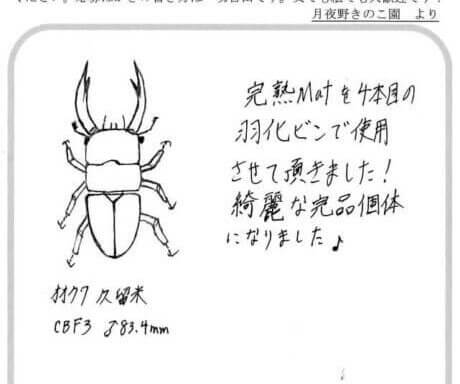 月夜野きのこ園 より
完熟Matを4本目の
羽化ビンで使用
させて頂きました！
綺麗な完品個体
になりました♪
オオクワ 久留米
CBF3 ♂83.4mm